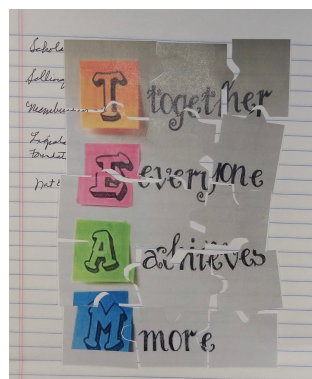 T together
E everyone
A achieves
M more